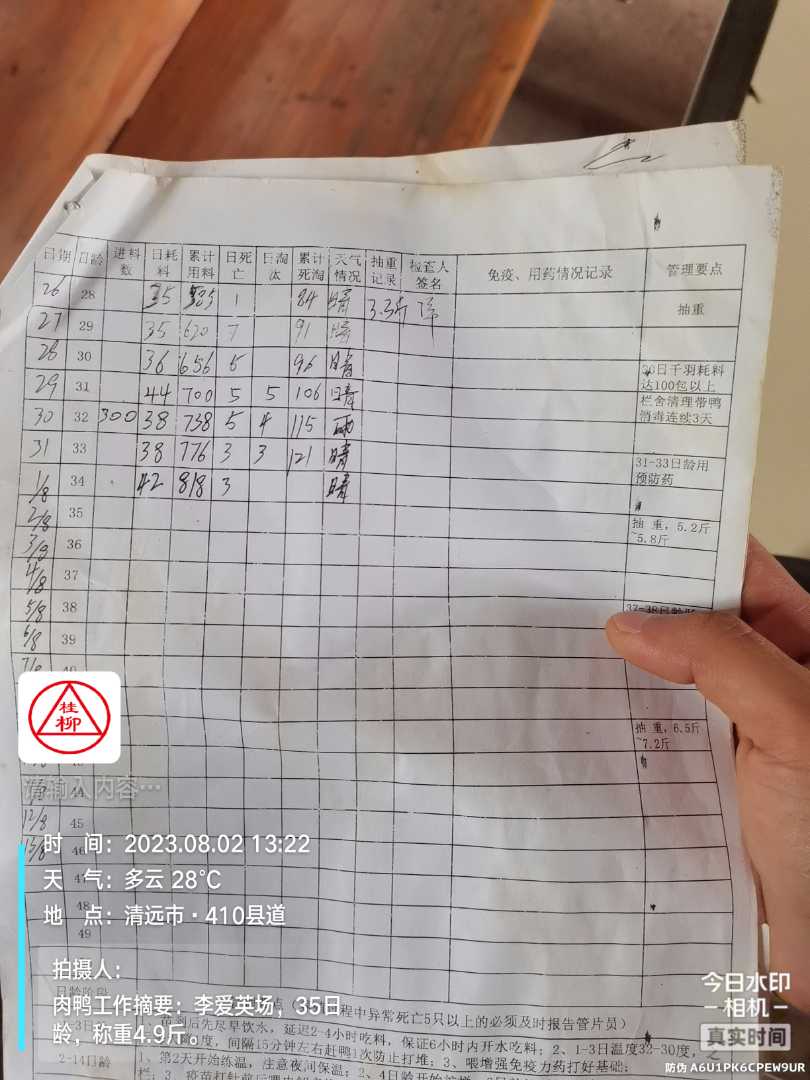 日期 日龄 进料数 日耗料 累计用料 日死亡 日淘汰 累计死淘 天气情况 抽重记录 检查人签名 免疫、用药情况记录 管理要点
26 28 35 585 1 84 晴 3.3斤 抽重
27 29 35 620 7 91 晴
28 30 36 656 5 96 晴 30日千羽耗料达100包以上
29 31 44 700 5 5 106 晴 栏舍清理带鸭消毒连续3天
30 32 300 38 738 5 4 115 雨
31 33 38 776 3 3 121 晴 31-33日龄用预防药
1/8 34 42 818 3 晴
2/8 35 抽重,5.2斤~5.8斤
3/8 36
4/8 37
5/8 38 37-38日龄
6/8 39
7/8 40
抽重,6.5斤~7.2斤
44
12/8 45
13/8 46
47
48
49
桂柳
请输入内容…
时 间:2023.08.02 13:22
天 气:多云 28℃
地 点:清远市·410县道
拍摄人:
肉鸭工作摘要:李爱英场,35日龄,称重4.9斤。
日龄阶段
程中异常死亡5只以上的必须及时报告管片员)
后先尽早饮水,延迟2-4小时吃料,保证6小时内开水吃料;2、1-3日温度32-30度,
度,间隔15分钟左右赶鸭1次防止打堆;3、喂增强免疫力药打好基础;
2-14日龄 1、第2天开始练温,注意夜间保温;2、4日龄开始
今日水印
相机
真实时间
防伪 A6U1PK6CPEW9UR